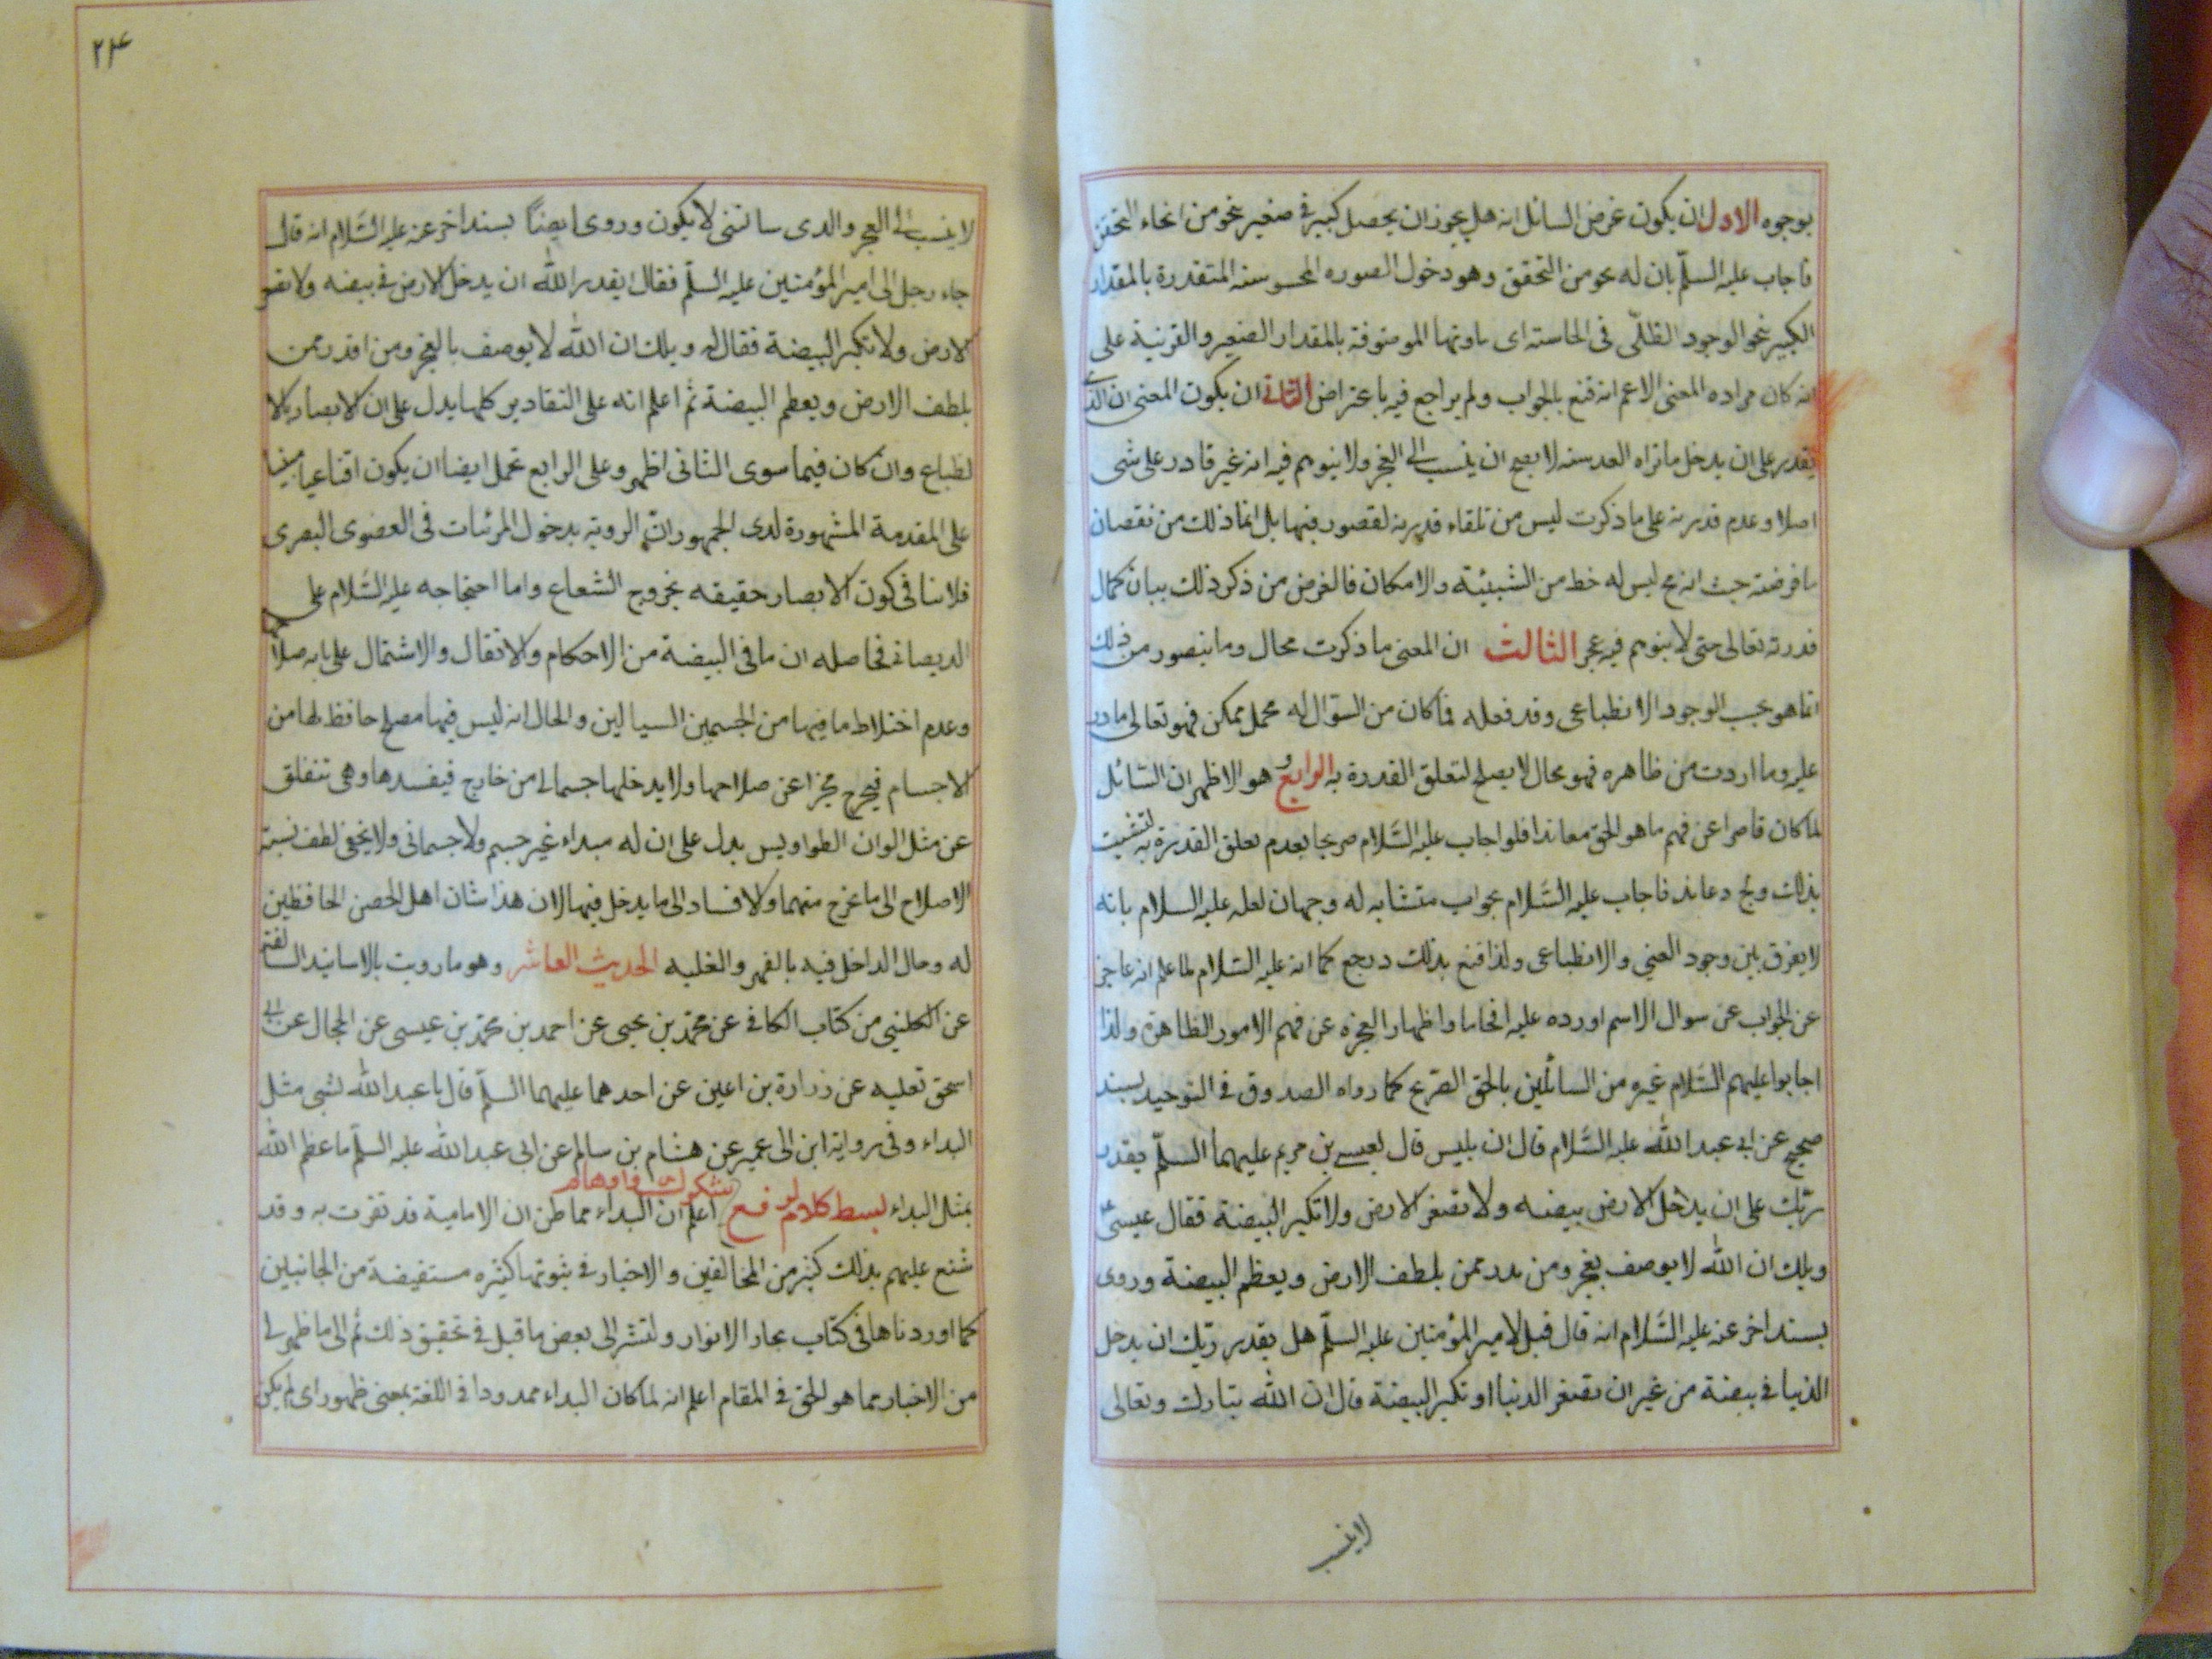 بوجوه الاول ان يكون غرض السائل انه هل يجوز ان يحصل كبير فى صغير بنحو من انحاء التحقق
فاجاب عليه السلّم بان له نحو من التحقق وهو دخول الصوره المحسوسه المتقدرة بالمقدار
الكبير بنحو الوجود الظلّى فى الحاسته اى مادتها الموصوفة بالمقدار الصغير والقرنية على
انه كان مراده المعنى الاعم انه قنع بالجواب ولم يراجع فيه باعتراض الثانى ان يكون المعنى ان الذى
يقدر على ان يدخل ما تراه العدسه لا يصح ان ينسب الى العجز ولا يتوهم فيه انه غير قادر على شى
اصلا وعدم قدرته على ما ذكرت ليس من تلقاء قدرته لقصور فيها بل انما ذلك من نقصان
ما فرضته حيث انه مح ليس له حظ من الشيئية والامكان فالغرض من ذكر ذلك بيان كمال
قدرته تعالى حتى لا يتوهم فيه عجز الثالث ان المعنى ما ذكرت محال وما يتصور من ذلك
انما هو بحسب الوجود الانطباعى وقد فعله فما كان من السؤال له محمل ممكن فهو تعالى قادر
عليه وما اردت من ظاهره فهو محال لا يصلح لتعلق القدرة به الرابع و هو الاظهر ان السائل
لما كان قاصرا عن فهم ما هو الحق معاندا فلو اجاب عليه السَّلام صريحا بعدم تعلق القدرة به لتشبث
بذلك ولج وعاند فاجاب عليه السَّلام بجواب متشابه له وجهان لعله عليه السلام بانه
لا يفرق بين وجود العينى والانطباعى ولذا قنع بذلك ورجع كما انه عليه السّلام لما علم انه عاجز
عن الجواب عن سوال الاسم اورده عليه افحاما واظهار العجزه عن فهم الامور الظاهرة ولذا
اجابوا عليهم السَّلام غيره من السائلين بالحق الصّريح كما رواه الصدوق فى التوحيد بسند
صحيح عن ابى عبد الله عليه السَّلام قال ان ابليس قال لعيسى بن مريم عليهما السلّم يقدر
ربّك على ان يدخل الارض بيضه ولا تصغر الارض ولا تكبر البيضة فقال عيسى ع
ويلك ان الله لا يوصف بعجز ومن اقدر ممن يلطف الارض ويعظم البيضة وروى
بسند اخر عنه عليه السَّلام انه قال قيل لامير المؤمنين عليه السلّم هل يقدر ربّك ان يدخل
الدنيا فى بيضة من غير ان تصغر الدنيا او تكبر البيضة قال ان الله تبارك وتعالى
لا ينسب
٢٤
لا ينسب الى العجز والذى سالتنى لا يكون وروى ايضاً بسند اخر عنه عليه السَّلام انه قال
جاء رجل الى امير المؤمنين عليه السلّم فقال ايقدر الله ان يدخل الارض فى بيضه ولا تصغر
الارض ولا تكبر البيضة فقال له ويلك ان الله لا يوصف بالعجز ومن اقدر ممن
يلطف الارض ويعظم البيضة ثم اعلم انه على التقادير كلها يدل على ان الابصار بالا
نطباع وان كان فيما سوى الثانى اظهر وعلى الرابع تحمل ايضا ان يكون اقناعيا مبنيا
على المقدمة المشهورة لدى الجمهور انّ الروية بدخول المرئيات فى العضوى البصرى
فلا ينافى كون الابصار حقيقه بخروج الشعاع واما احتجاجه عليه السَّلام على
الديصانى فحاصله ان ما فى البيضة من الاحكام والاتقال والاشتمال على ما به صلاحها
وعدم اختلاط ما فيها من الجسمين السيالين والحال انه ليس فيها مصلح حافظ لها من
الاجسام فيخرج مخبرا عن صلاحها ولا يدخلها جسمانى من خارج فيفسدها وهى تنفلق
عن مثل الوان الطواويس يدل على ان له مبداء غير جسم ولا جسمانى ولا يخفى لطف نسبة
الاصلاح الى ما يخرج منهما والافساد الى ما يدخل فيها لان هذا شان اهل الحصن الحافظين
له وحال الداخل فيه بالقهر والغلبه الحديث العاشر وهو ما رويت بالاسانيد السالفة
عن الكلينى من كتاب الكافى عن محمّد بن يحيى عن احمد بن محمّد بن عيسى عن الحجال عن ابى
اسحق ثعلبه عن زرارة بن اعين عن احدهما عليهما السلّم قال ما عبد الله لشىء مثل
البداء وفى رواية ابن ابى عمير عن هشام بن سالم عن ابى عبد الله عليه السلّم ما عظم الله
بمثل البداء بسط كلام لرفع شكوك و اوهام اعلم ان البداء مما ظن ان الامامية قد تفرت به وقد
شنع عليهم بذلك كثير من المخالفين والاخبار فى ثبوتها كثيره مستفيضة من الجانبين
كما اوردناها فى كتاب بحار الانوار ولنشر الى بعض ما قيل فى تحقيق ذلك ثم الى ما ظهر لى
من الاخبار مما هو الحق فى المقام اعلم انه لما كان البداء ممدودا فى اللغة بمعنى ظهور راى لم يكن